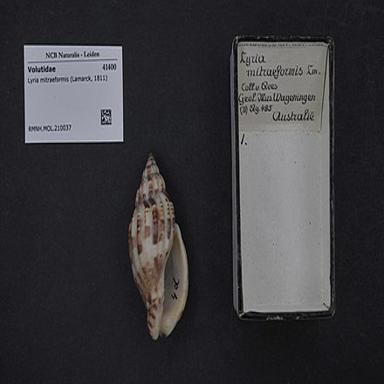 NCB Naturalis - Leiden
Volutidae 41400
Lyria mitraeformis (Lamarck, 1811)
RMNH.MOL.210037
Lyria
mitraeformis Lm.
Geol. Mus. Wageningen
Australië
1.